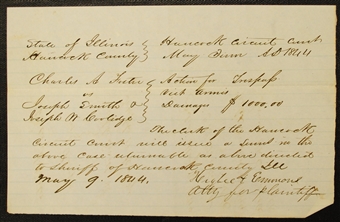 State of Illinois } Hancock Circuit Court
Hancock County } May Term AD 1844
Charles A Foster } Action for Trespass
vs } vict armis
Joseph Smith & } Damage $1000,00
Joseph W Coolidge
The clerk of the Hancock
Circuit Court will issue a sums in the
above case returnable as also directed
to Sheriff of Hancock County Ills
May 9. 1844. Emmons
Atty for Plaintiff